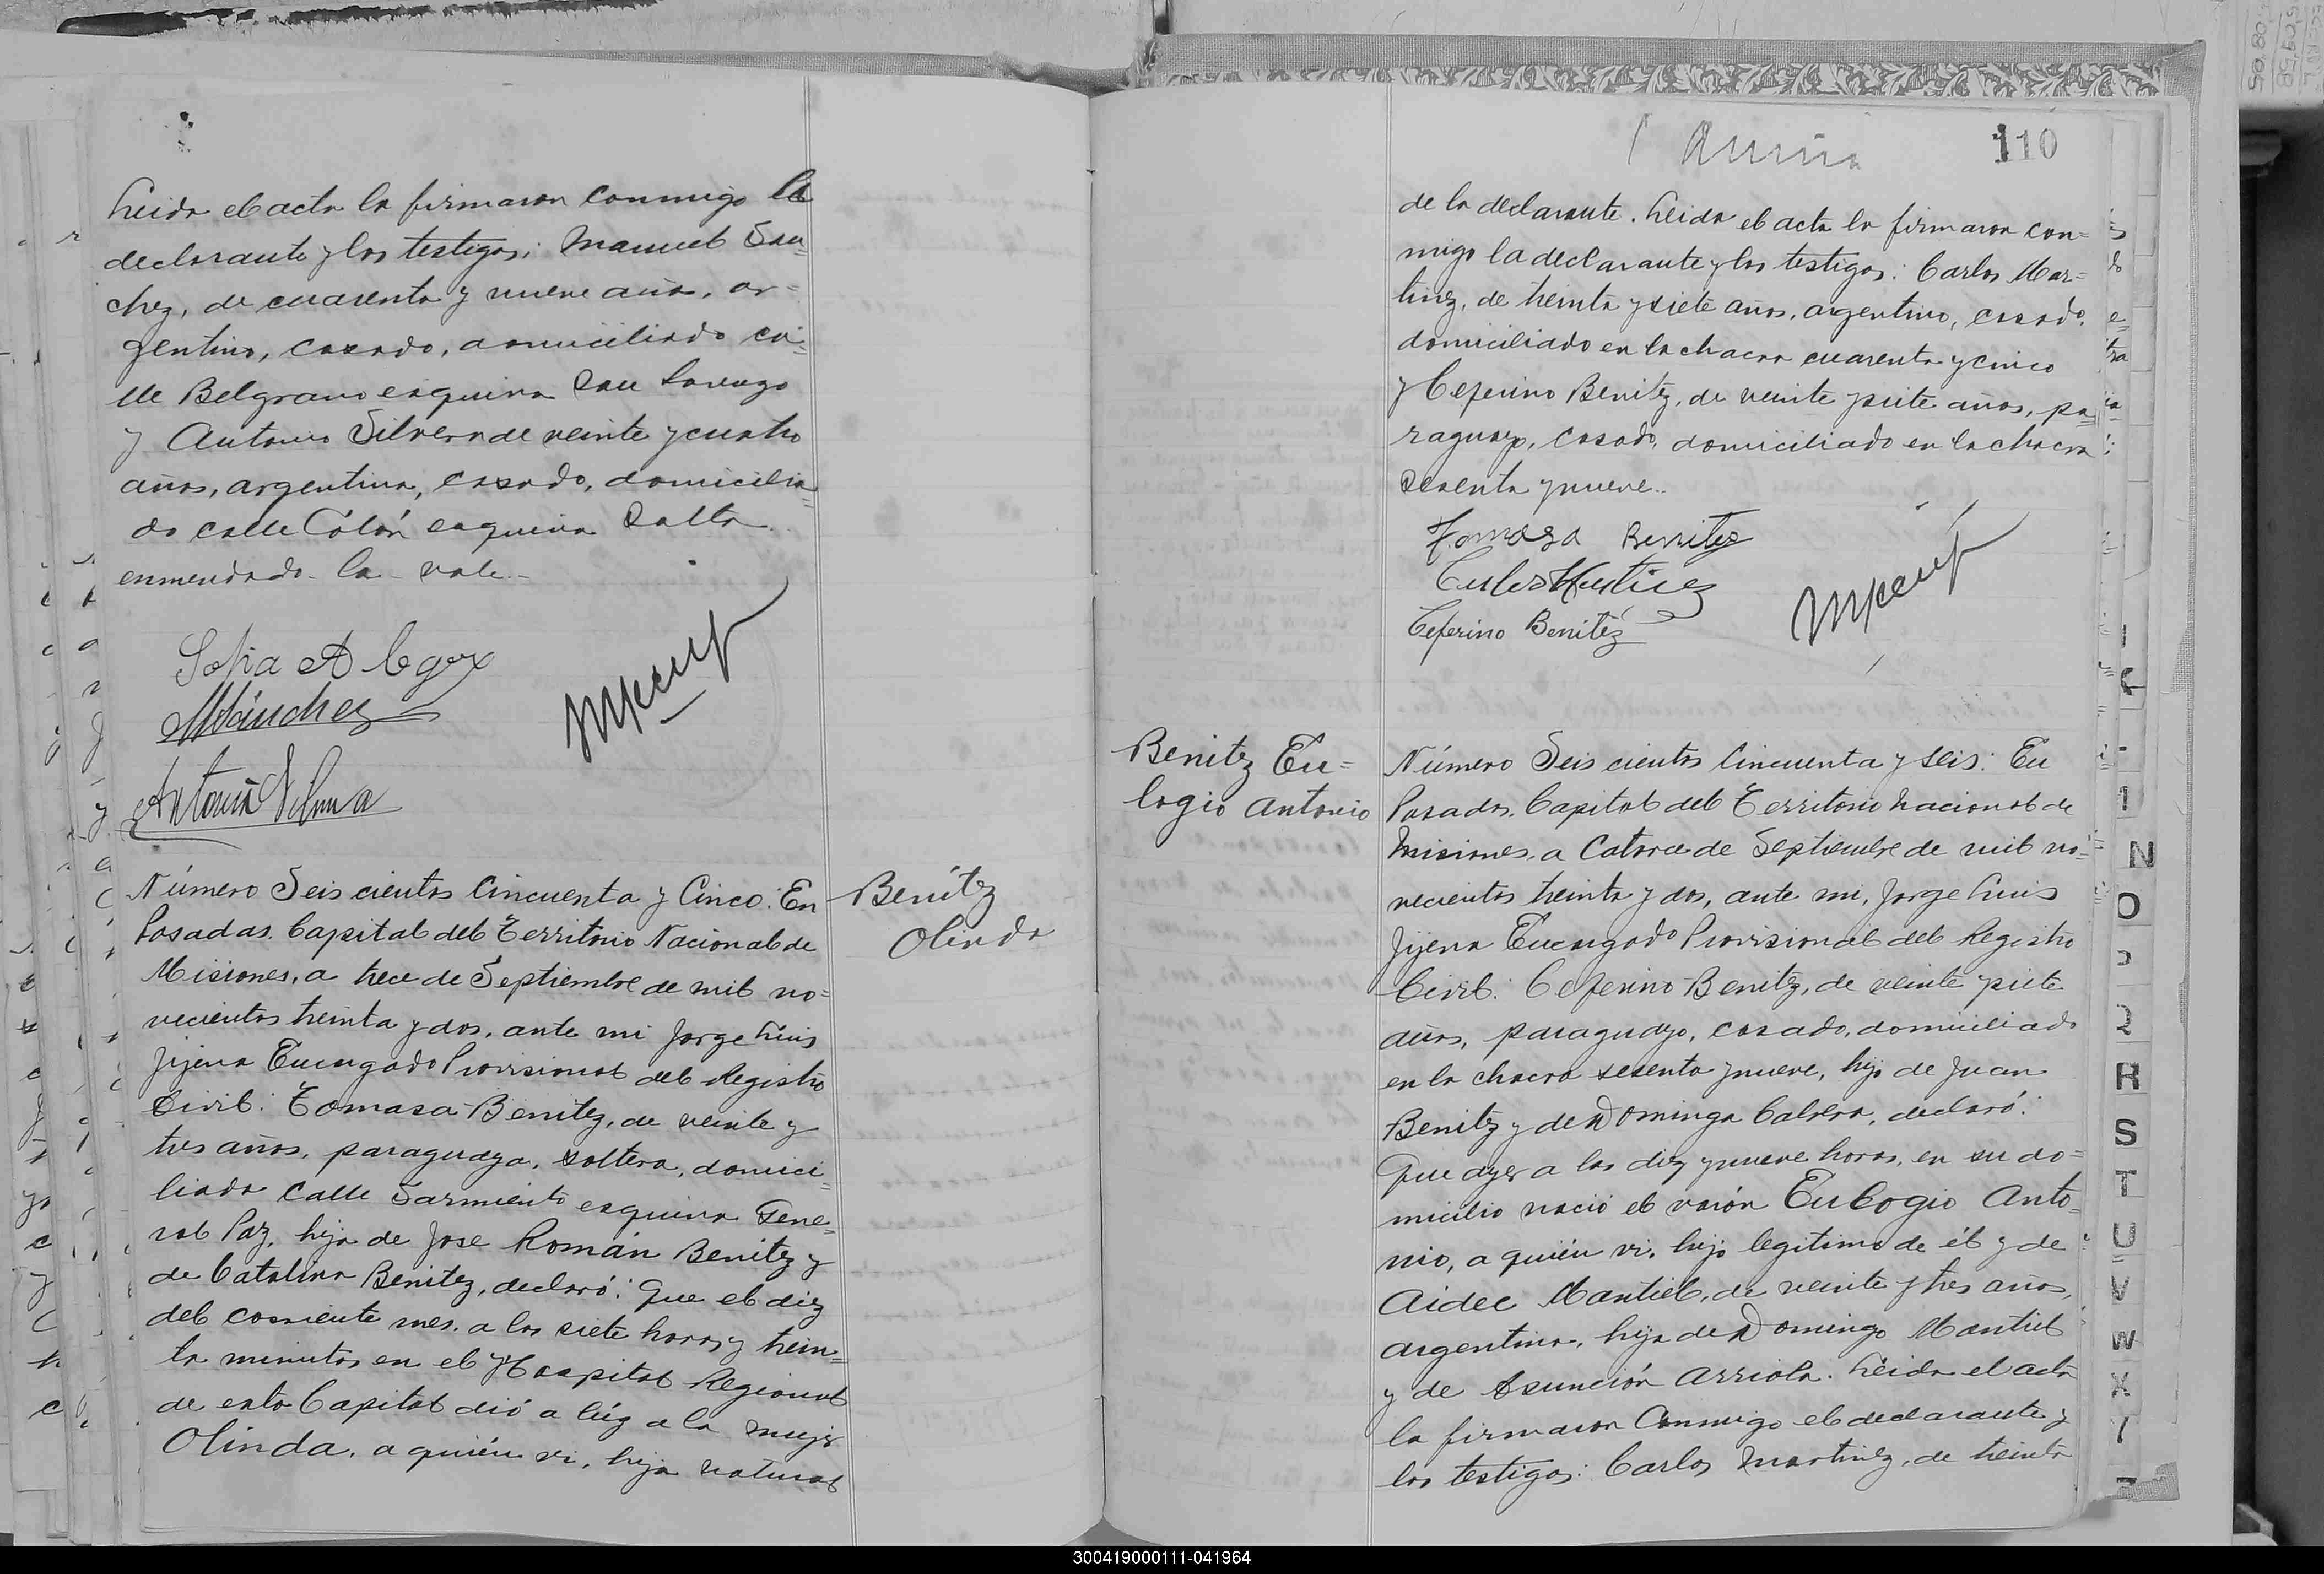 Leida el acta la firmaron conmigo la
declarante y los testigos: Manuel San=
chez, de cuarenta y nueve años, ar=
gentino, casado, domiciliado ca=
lle Belgrano esquina San Lorenzo
y Antonio Silvera de veinte y cuatro
años, argentino, casado, domicilia=
do calle Colón esquina Salta.
enmendado - la - vale.-
Sofia A
MSánchez
Antonio Silvera
Número Seis cientos Cincuenta y Cinco: En
Posadas, Capital del Territorio Nacional de
Misiones, a trece de Septiembre de mil no=
vecientos treinta y dos, ante mi Jorge Luis
Jijena Encargado Provisional del Registro
Civil: Tomasa Benitez, de veinte y
tres años, paraguaya, soltera, domici=
liada calle Sarmiento esquina Gene=
ral Paz, hija de Jose Román Benitez y
de Catalina Benitez, declaró: Que el diez
del corriente mes, a las siete horas y trein=
ta minutos en el Hospital Regional
de esta Capital dió a lúz a la mujer
Olinda, a quién vi, hija natural
Benítez
Olinda
110
de la declarante. Leida el acta la firmaron con=
migo la declarante y los testigos: Carlos Mar=
tinez, de treinta y siete años, argentino, casado,
domiciliado en la chacra cuarenta y cinco
y Ceferino Benitez, de veinte y siete años, pa=
raguayo, casado, domiciliado en la chacra
sesenta y nueve..
Tomasa Benitez
Carlos Martinez
Ceferino Benítez
Benitez Eu=
logio Antonio
Número Seis cientos Cincuenta y seis: En
Posadas, Capital del Territorio Nacional de
Misiones, a Catorce de Septiembre de mil no=
vecientos treinta y dos, ante mi, Jorge Luis
Jijena Encargado Provisional del Registro
Civil: Ceferino Benitez, de veinte y siete
años, paraguayo, casado, domiciliado
en la chacra sesenta y nueve, hijo de Juan
Benitez y de Dominga Cabrera, declaró:
Que ayer a las diez y nueve horas, en su do=
micilio nació el varón Eulogio Anto=
nio, a quién vi, hijo legitimo de él y de
Aidee Montiel, de veinte y tres años,
argentina, hija de Domingo Montiel
y de Asunción Arriola. Leida el acta
la firmaron Conmigo el declarante y
los testigos: Carlos Martinez, de treinta
N
O
R
S
T
U
V
W
X
300419000111-041964